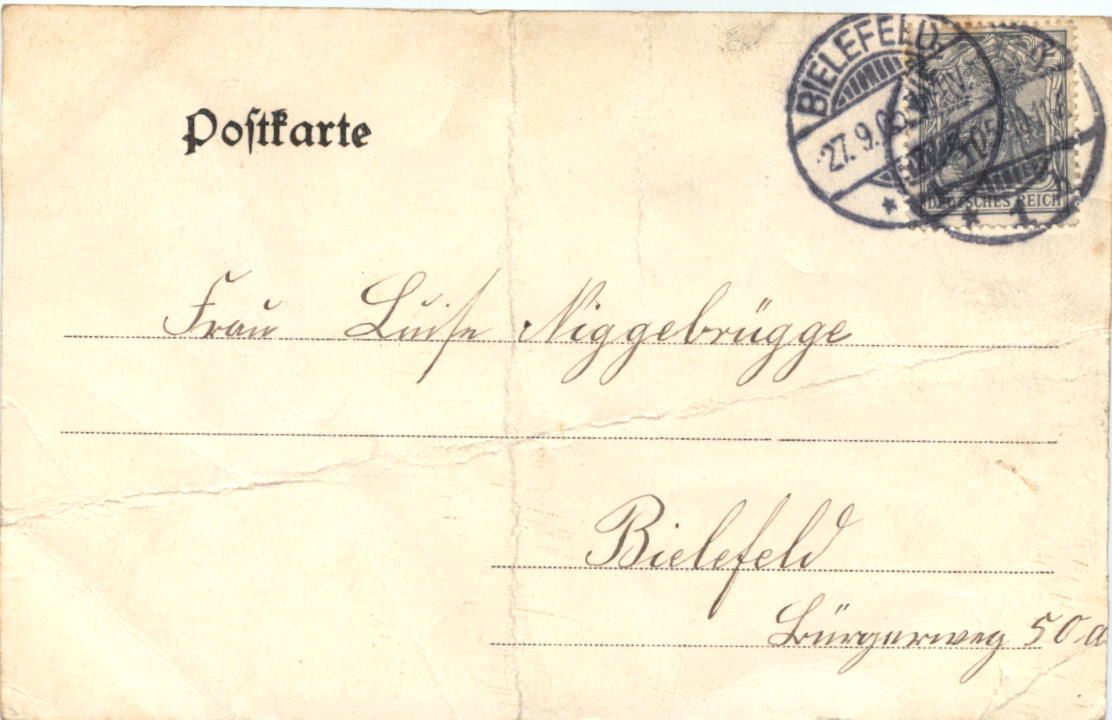 Postkarte
BIELEFELD
27.9.05
DEUTSCHES REICH
* 1
Frau Luise Niggebrügge
Bielefeld
Bürgerweg 50 a